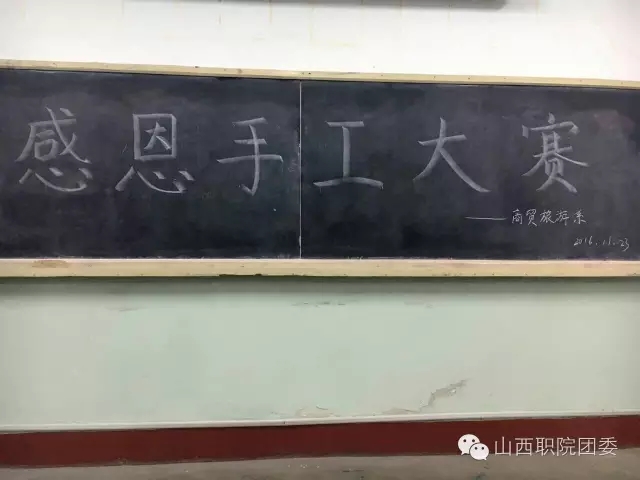 感恩手工大赛
——商贸旅游系
2016.11.23
山西职院团委